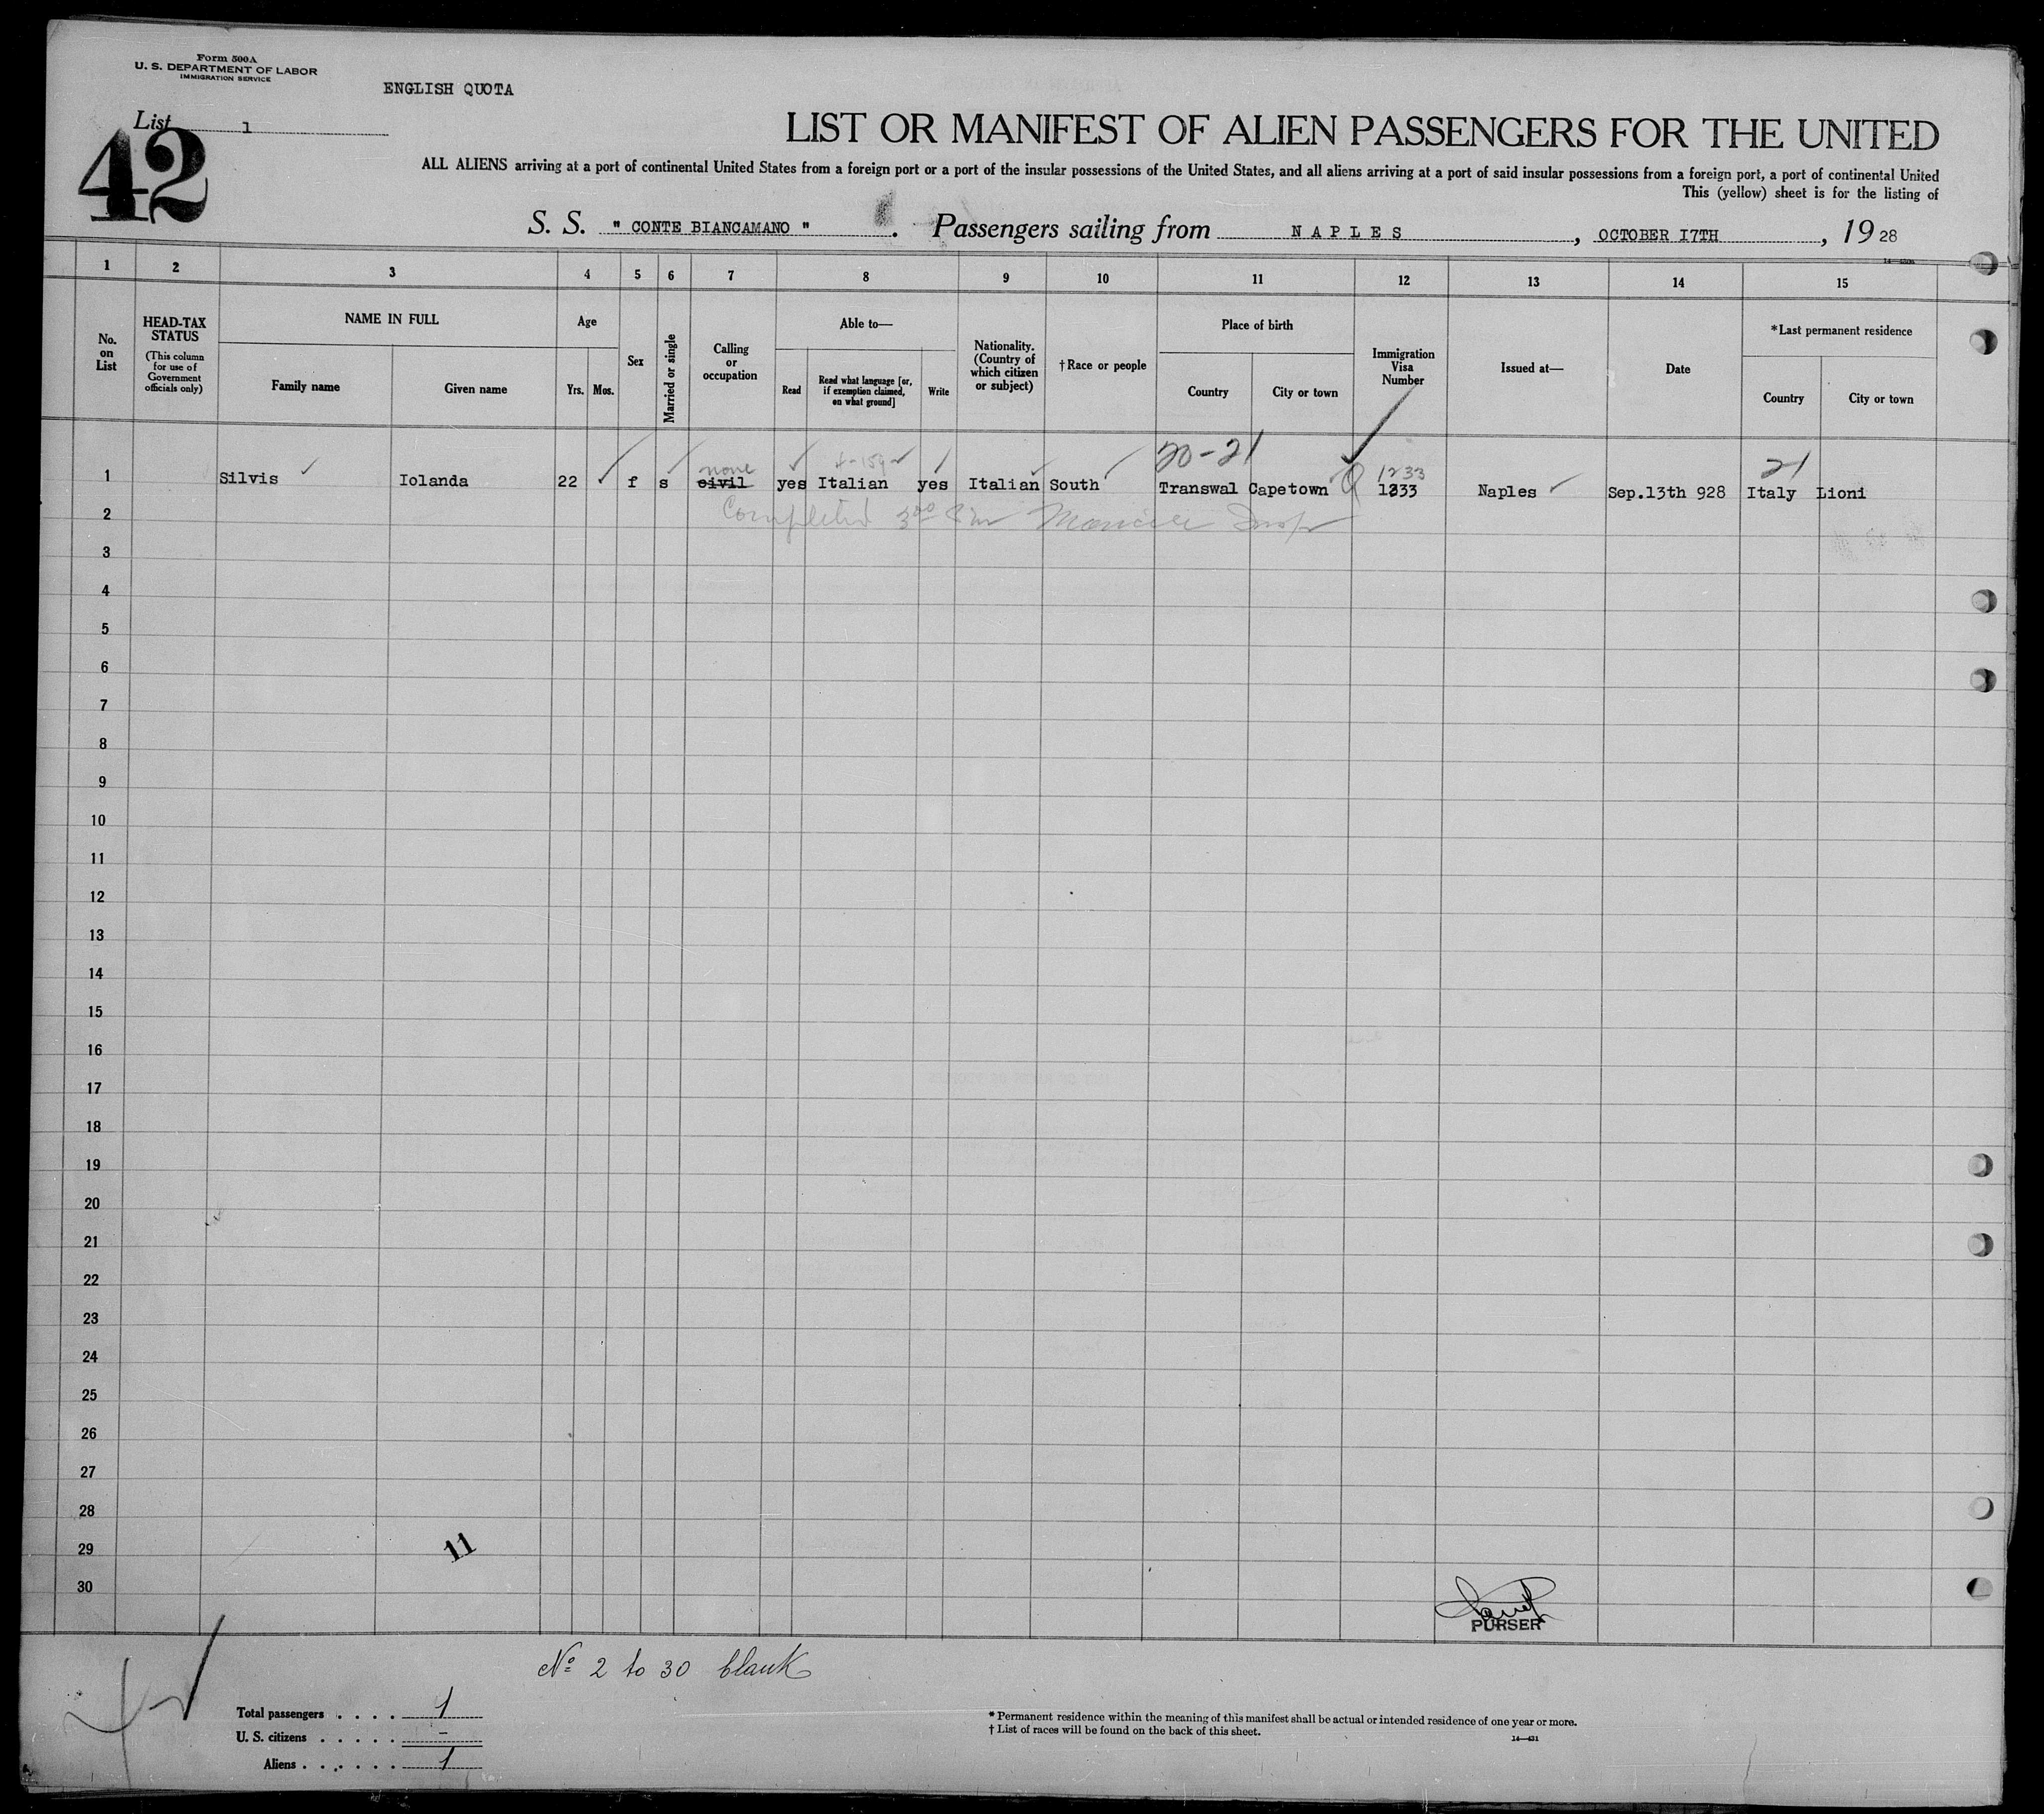 Form 500A
U. S. DEPARTMENT OF LABOR
IMMIGRATION SERVICE
ENGLISH QUOTA
List 1
42
LIST OR MANIFEST OF ALIEN PASSENGERS FOR THE UNITED
ALL ALIENS arriving at a port of continental United States from a foreign port or a port of the insular possessions of the United States, and all aliens arriving at a port of said insular possessions from a foreign port, a port of continental United
This (yellow) sheet is for the listing of
S. S. " CONTE BIANCAMANO " . Passengers sailing from NAPLES , OCTOBER I7TH , 19 28
1 2 3 4 5 6 7 8 9 10 11 12 13 14 15
No. on List
HEAD-TAX STATUS
(This column for use of Government officials only)
NAME IN FULL
Family name Given name
Age
Yrs. Mos.
Sex
Married or single
Calling or occupation
Able to—
Read Read what language [or, if exemption claimed, on what ground] Write
Nationality. (Country of which citizen or subject)
† Race or people
Place of birth
Country City or town
Immigration Visa Number
Issued at—
Date
*Last permanent residence
Country City or town
none 20-21 1233 21
1 Silvis Iolanda 22 f s civil yes Italian yes Italian South Transwal Capetown 1333 Naples Sep.13th 928 Italy Lioni
2 Completed
3
4
5
6
7
8
9
10
11
12
13
14
15
16
17
18
19
20
21
22
23
24
25
26
27
28
29 11
30
PURSER
No 2 to 30 blank
Total passengers . . . . 1
U. S. citizens . . . . . -
Aliens . . . . . . 1
* Permanent residence within the meaning of this manifest shall be actual or intended residence of one year or more.
† List of races will be found on the back of this sheet.
14—431